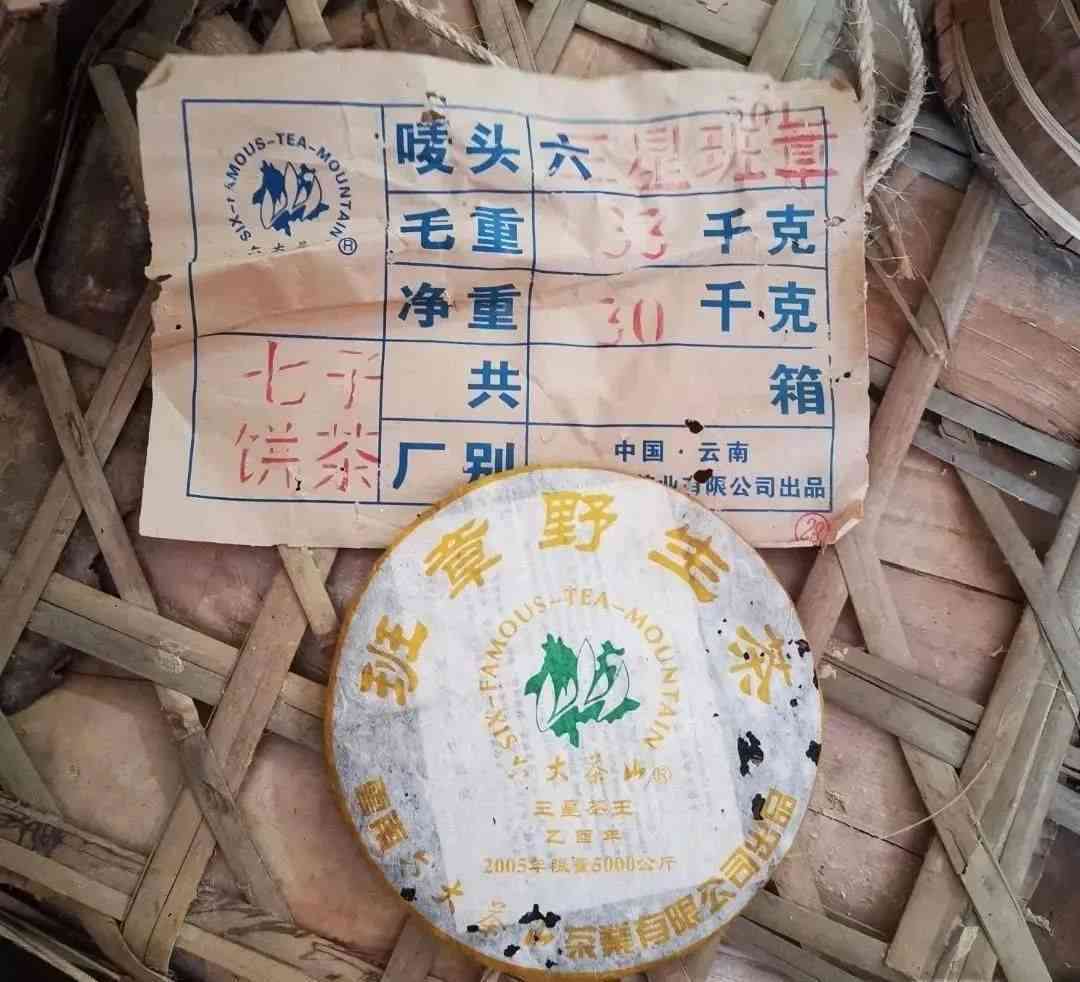 SIX-FAMOUS-TEA-MOUNTAIN ®
唛头 六 三星班章
501
毛重 33 千克
净重 30 千克
七子
饼茶
共 箱
厂别
中国·云南
茶业有限公司出品
班章野生茶
SIX-FAMOUS-TEA-MOUNTAIN
六大茶山®
三星茶王
乙酉年
2005年限量5000公斤
云南六大茶山茶業有限公司出品